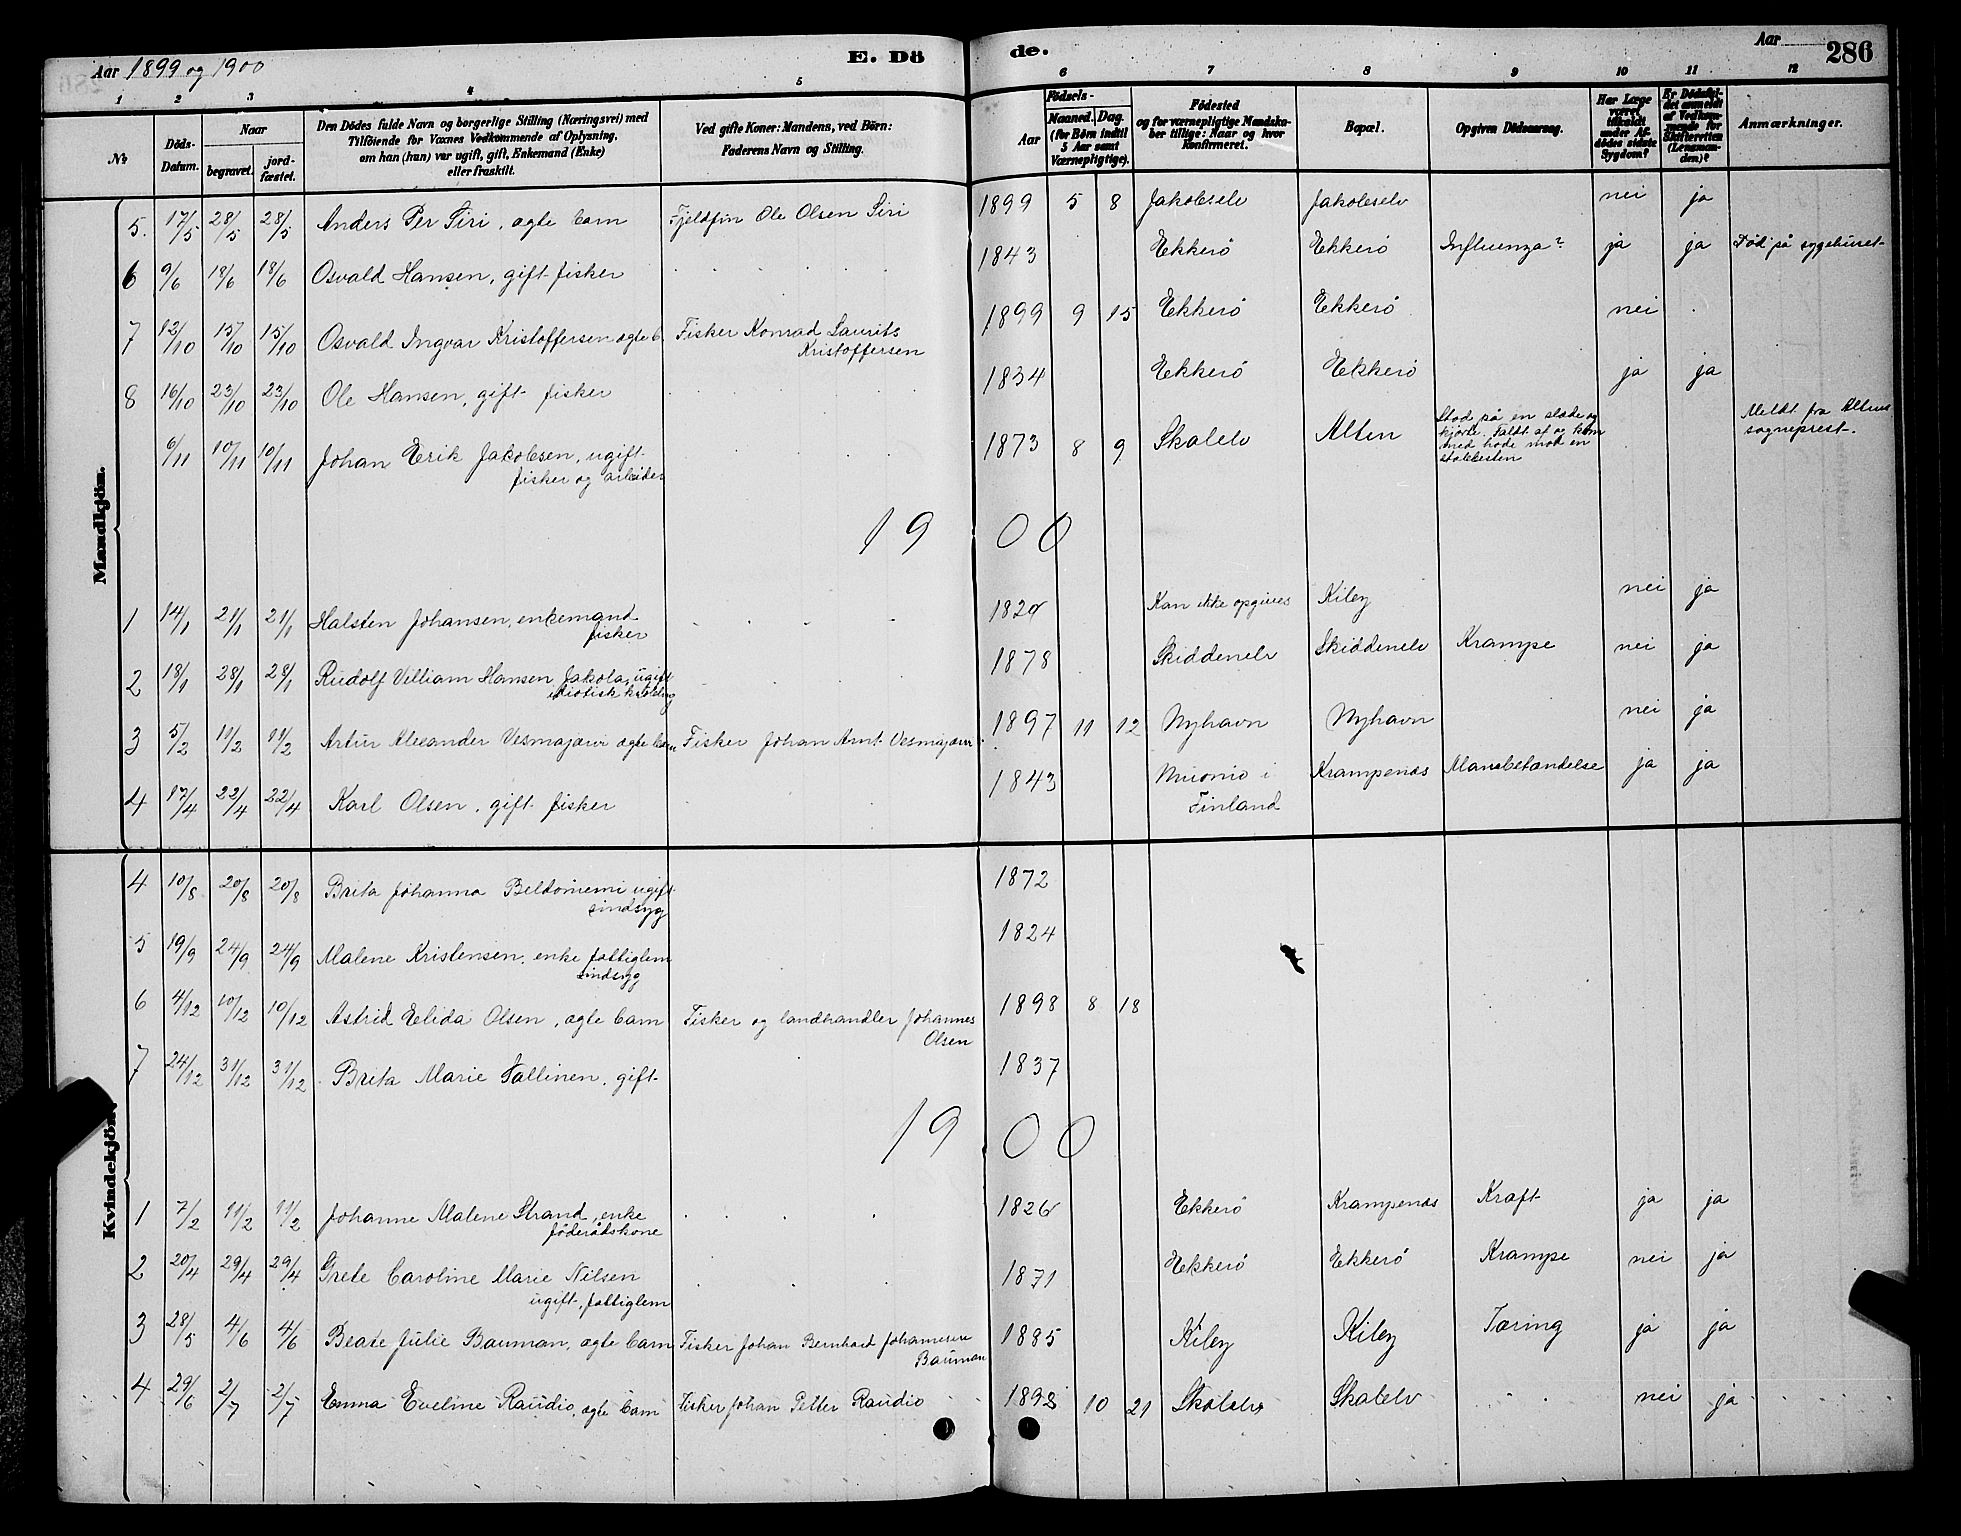 Aar 1899 og 1900
E. Dö
de.
Aar
286
1 2 3 4 5 6 7 8 9 10 11 12
No
Döds-Datum.
Naar
begravet.
jordfæstet.
Den Dödes fulde Navn og borgerlige Stilling (Næringsvei) med
Tilföiende for Voxnes Vedkommende af Oplysning,
om han (hun) var ugift, gift, Enkemand (Enke)
eller fraskilt.
Ved gifte Koner: Mandens, ved Börn:
Faderens Navn og Stilling.
Födsels-
Aar
Maaned. Dag.
(for Börn indtil
5 Aar samt
Værnepligtige).
Födested
og for værnepligtige Mandskaber tillige: Naar og hvor
Konfirmeret.
Bopæl.
Opgiven Dödsaarsag.
Har Læge
været
tilkaldt
under Afdödes sidste
Sygdom?
Er Dödsfaldet anmeldt
af Vedkommende for
Skifteretten
(Lensmanden)?
Anmærkninger.
Mandkjön.
5. 17/5 28/5 28/5 Anders Per Siri, ægte barn Fjeldfin Ole Olsen Siri 1899 5 8 Jakobselv Jakobselv nei ja
6 9/6 18/6 18/6 Osvald Hansen, gift fisker 1843 Ekkerö Ekkerö Influenza? ja ja Död på sygehuset
7 12/10 15/10 15/10 Osvald Ingvar Kristoffersen ægte b. Fisker Konrad Laurits
Kristoffersen 1899 9 15 Ekkerö Ekkerö nei
8 16/10 23/10 23/10 Ole Hansen, gift fisker 1834 Ekkerö Ekkerö ja ja
6/11 10/11 10/11 Johan Erik Jakobsen, ugift
fisker og arbeider 1873 8 9 Skalelv Alten Stod på en slæde og
kjörte. Faldt af og kom
med hode mod en
stolte Meldt fra Altens
sogneprest.
1900
1 14/1 21/1 21/1 Halsten Johansen, enkemand
fisker 1820 Kan ikke opgives Kiby nei ja
2 18/1 28/1 28/1 Rudolf Villiam Hansen Jakola, ugift
idiotisk krøbling 1878 Skiddenelv Skiddenelv Krampe nei ja
3 5/2 11/2 11/2 Artur Alexander Vesmajærvi ægte barn Fisker Johan Arnt Vesmajærvi 1897 11 12 Nyhavn Nyhavn nei ja
4 17/4 22/4 22/4 Karl Olsen, gift fisker 1843 Muonio i
Finland Krampenæs Mavebetændelse ja ja
Kvindekjön.
4 10/8 20/8 20/8 Brita Johanna Beldoniemi ugift
sindsyg 1872
5 19/9 24/9 24/9 Malene Kristensen, enke fattiglem
sindsyg 1824
6 4/12 10/12 10/12 Astrid Elida Olsen, ægte barn Fisker og landhandler Johannes
Olsen 1898 8 18
7 24/12 31/12 31/12 Brita Marie Tallinen, gift 1837
1900
1 7/2 11/2 11/2 Johanne Malene Strand, enke
föderådskone 1826 Ekkerö Krampenæs Kræft ja ja
2 20/4 29/4 29/4 Grete Caroline Marie Nilsen
ugift, fattiglem 1871 Ekkerö Ekkerö Krampe nei ja
3 28/5 4/6 4/6 Beate Julie Bauman, ægte barn Fisker Johan Bernhard Johannesen
Bauman 1885 Kiby Kiby Tæring ja ja
4 29/6 2/7 2/7 Emma Eveline Raudio, ægte barn Fisker Johan Petter Raudio 1898 10 21 Skalelv Skalelv nei ja